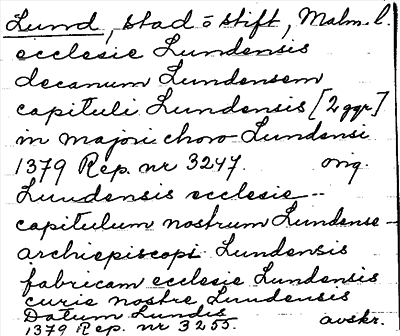 Lund, stad o stift, Malm. l.
ecclesie Lundensis
decanum Lundensem
capituli Lundensis [2 ggr.]
in majori choro Lundensi
1379 Rep. nr 3247. orig.
Lundensis ecclesie --
capitulum nostrum Lundense -
archiepiscopi Lundensis
fabricam ecclesie Lundensis
curie nostre Lundensis
Datum Lundis
1379 Rep. nr 3255. avskr.